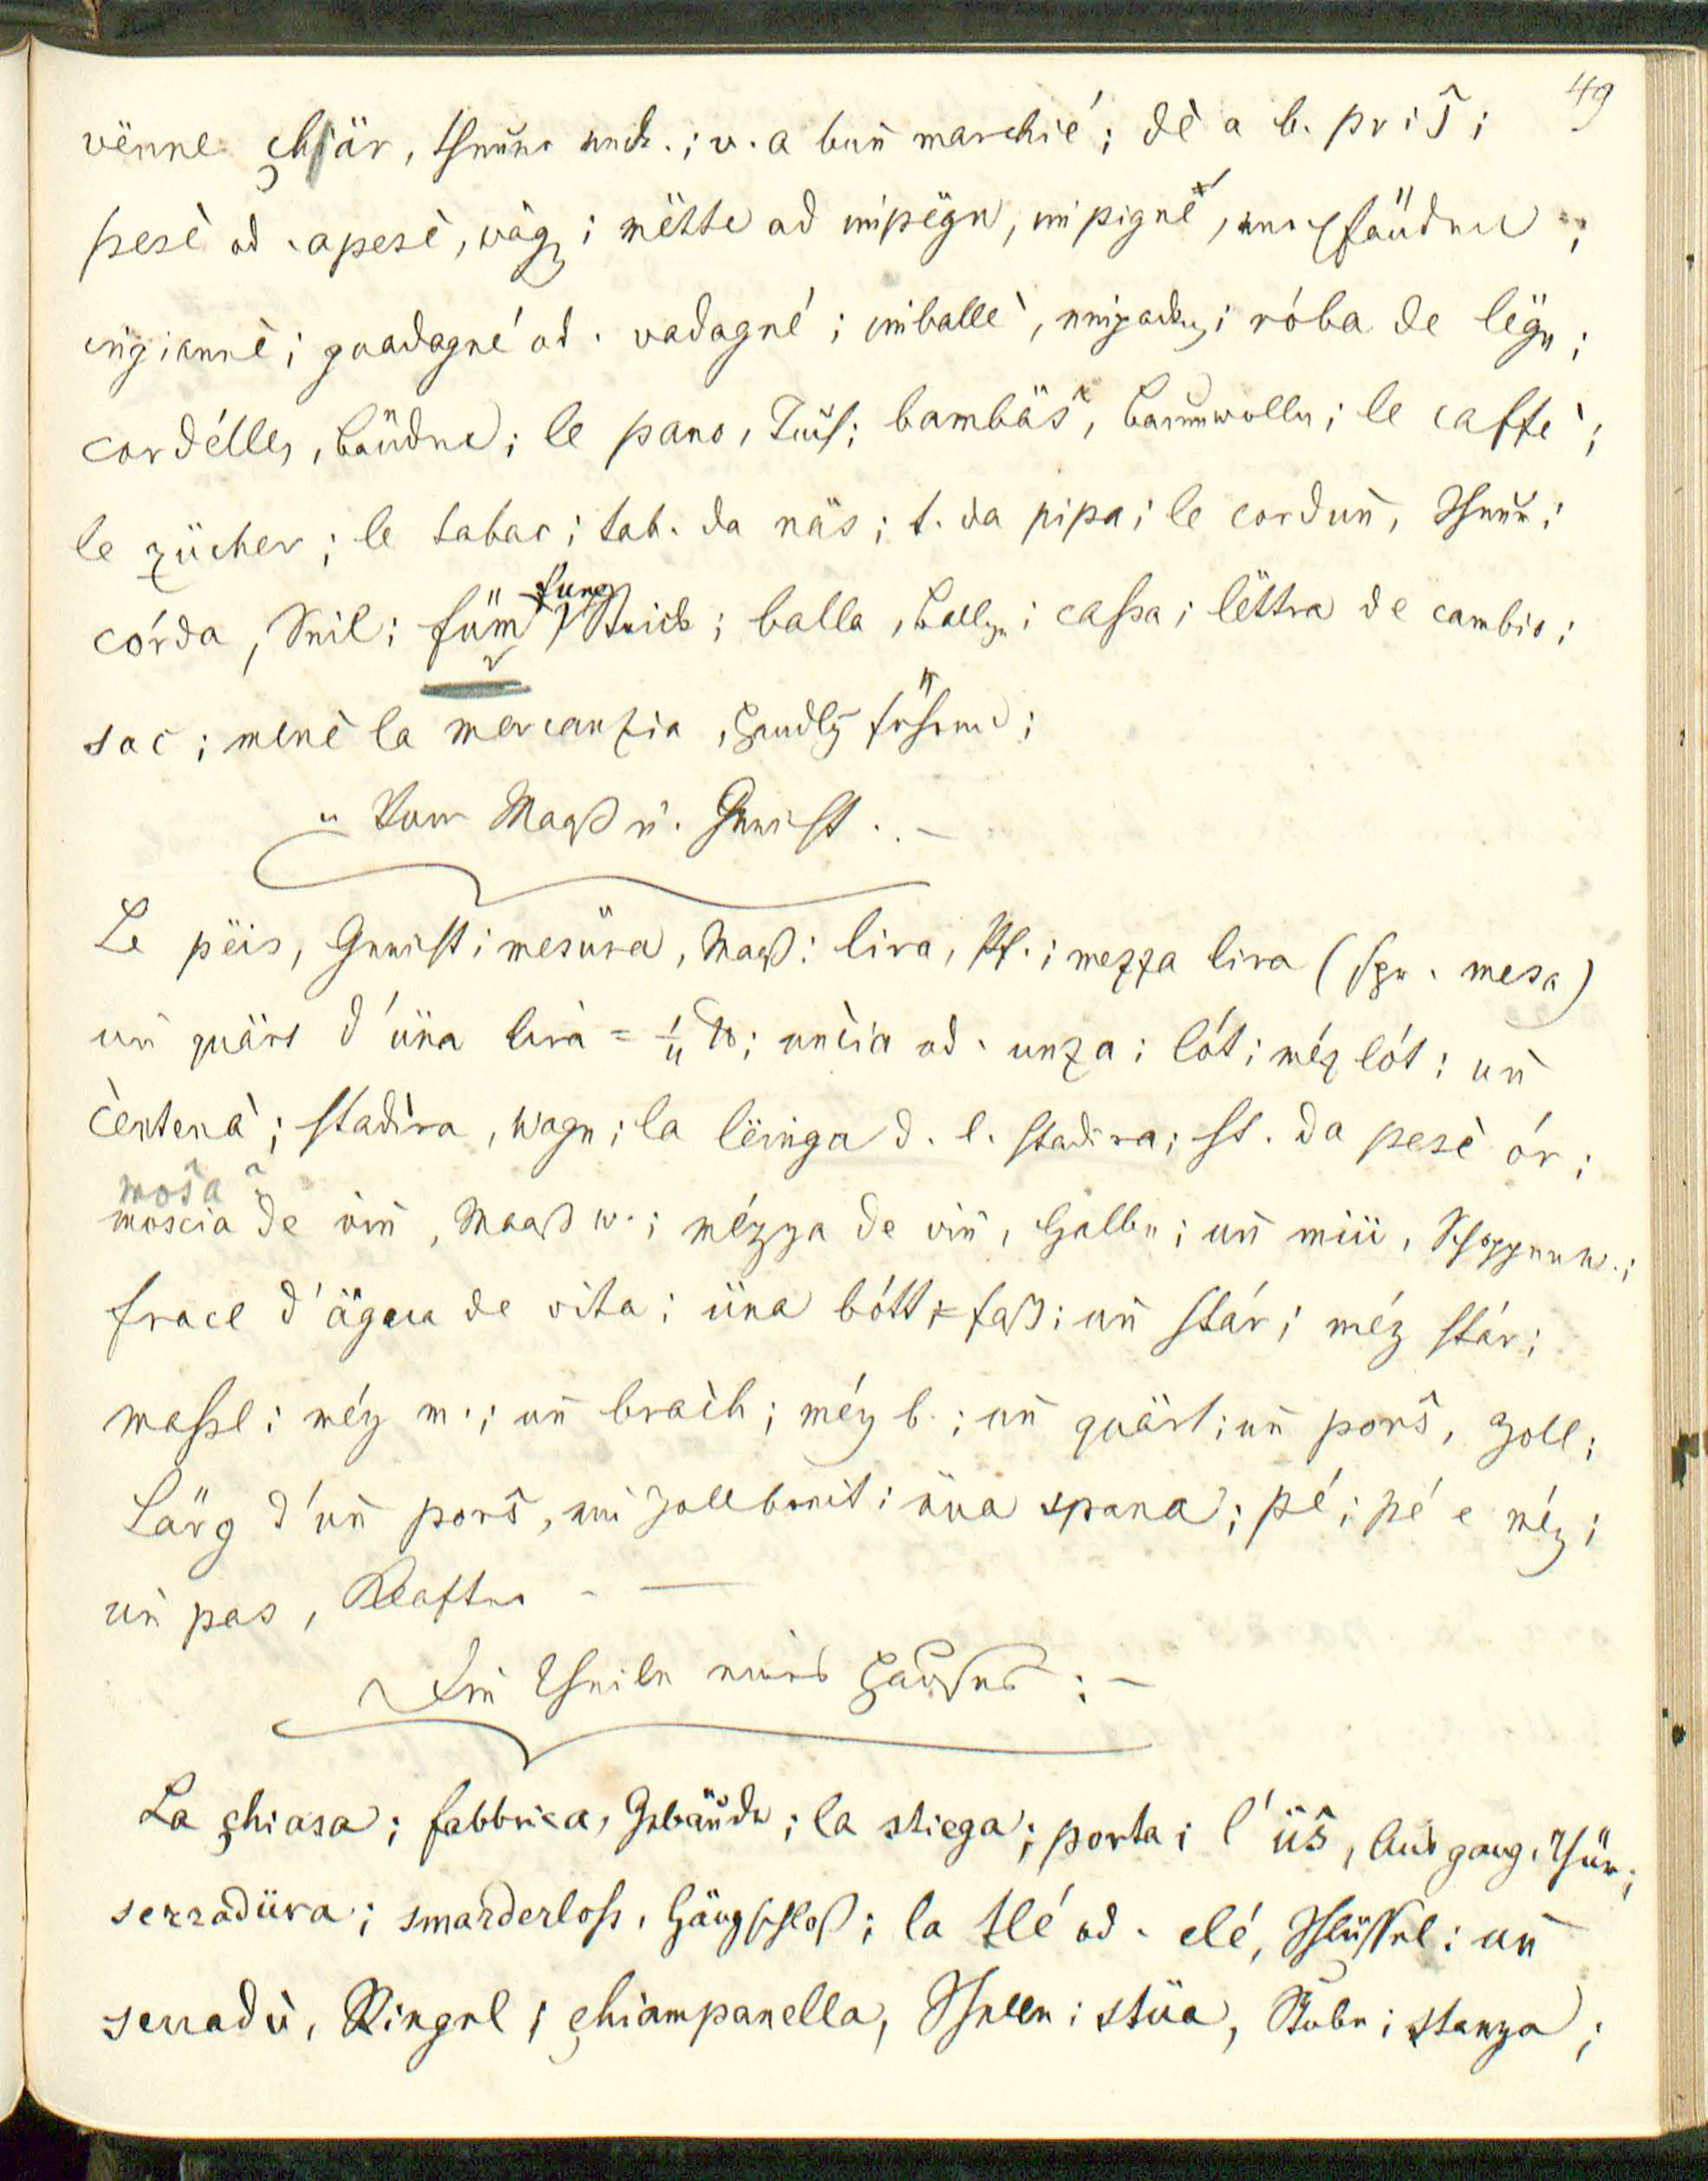 49
vënne chiär, theuer verk.; v. a buñ marchié; dè a b. priŝ;
pesè od. apesè, wäg; mëtte ad impëgn, impigné, verpfänden;
ingianné; guadagné od. vadagné; imballè, einpacken; róba de lëgn;
cordélles, Bänder; le pano, Tuch; bambäŝ, Baumwolle; le caffè;
le zücher; le tabac; tab. da näs; t. da pipa; le corduñ, Schnur;
córda, Seil; füm fune, Strick; balla, Ballen; cassa; lëttra de cambio;
sac; menè la mercanzia, Handlg führen;
Vom Maaß u. Gewicht. –
Le pëis, Gewicht; mesüra, Maaß; lira, Pf.; mezza lira (spr. mesa)
uñ quärt d'üna lira = 1/4 ℔; uncia od. unza; lót; méz lót; uñ
centenà; stadira, Wage; la lëinga d. l. stadira; st. da pesè ór;
moŝa
moscia de viñ, Maaß W.; mézza de viñ, Halbe; uñ miü, Schoppen W.;
fracl d'ägua de vita; üna bótt = Faß; uñ stár; méz stár;
massl; méz m.; uñ brach; méz b.; uñ quärt; uñ porŝ, Zoll;
Lärg d'uñ porŝ, ein Zollbreit; üna spana; pé; pé e méz;
uñ pas, Klafter – —
Die Theile eines Hauses: –
La chiasa; fabbrica, Gebäude; la stiega; porta; l'üŝ, Ausgang, Thür;
serradüra; smarderloss, Hängschloß; la tlé od. clé, Schlüssel; uñ
serradù, Riegel; chiampanella, Schelle; stüa, Stube; stanza;